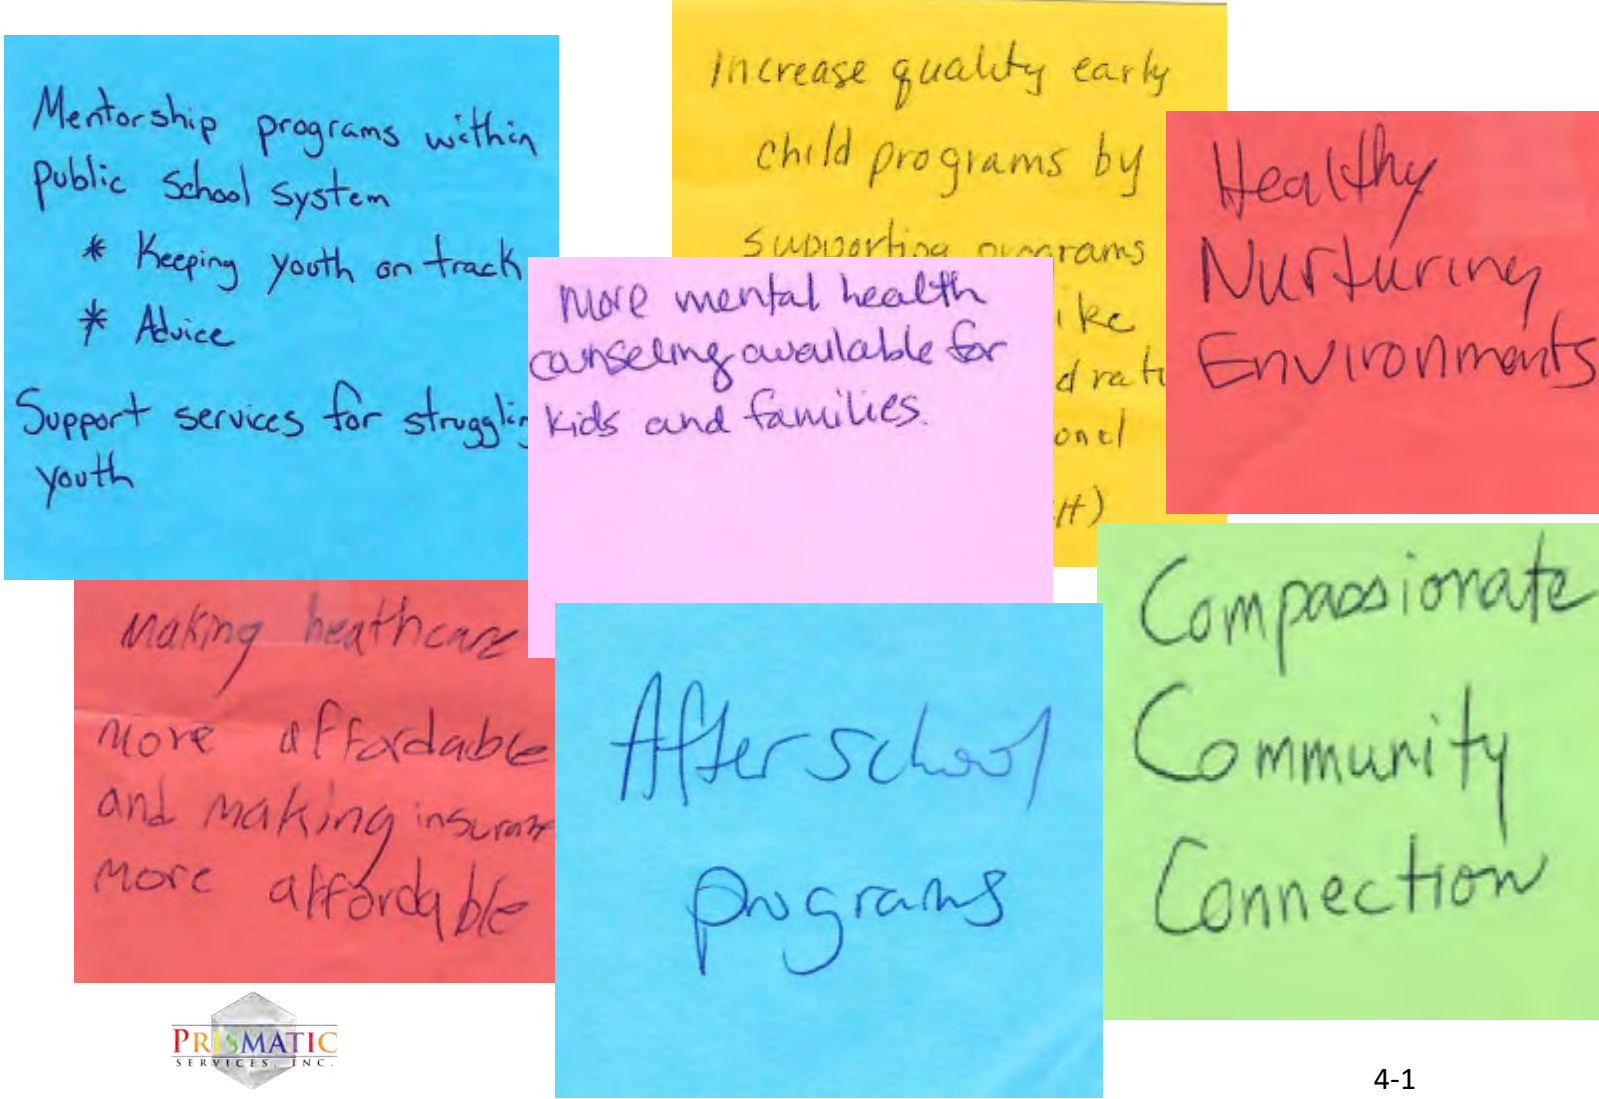 Mentorship programs within
public school system
* Keeping youth on track
* Advice
Support services for struggling
youth
Increase quality early
child programs by
supporting programs
like
d rati
onel
H)
Healthy
Nurturing
Environments
More mental health
counseling available for
kids and families.
Making heathcare
more affordable
and making insurance
more affordable
After school
programs
Compassionate
Community
Connection
PRISMATIC
SERVICES, INC.
4-1